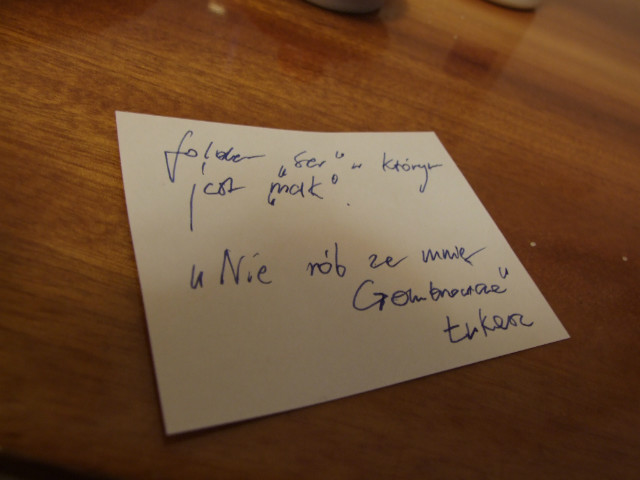 folder „ser” w którym
jest „mak”.
„Nie rób ze mnie
Gombrowicza”
Łukasz